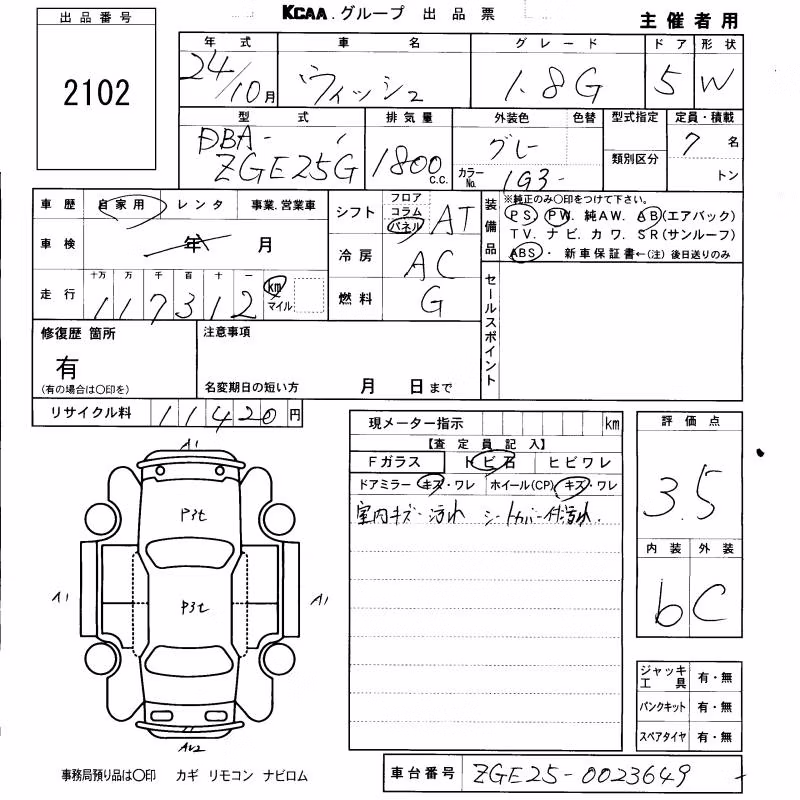 KCAA.グループ 出品票
主催者用
出品番号
2102
年式 車名 グレード ドア 形状
24/10月 ウィッシュ 1.8G 5 W
型式 排気量 外装色 色替 型式指定 定員・積載
DBA-
ZGE25G 1800c.c. グレー 7名
類別区分
カラーNo. 1G3- トン
車歴 自家用 レンタ 事業.営業車
車検 年 月
走行 十万 万 千 百 十 一
117312 km マイル
シフト フロア コラム パネル AT
冷房 AC
燃料 G
装備品
※純正のみ○印をつけて下さい。
PS. PW. 純AW. AB(エアバック)
TV. ナビ. カワ. SR(サンルーフ)
ABS・ 新車保証書←(注)後日送りのみ
セールスポイント
修復歴 箇所
有
(有の場合は○印を)
注意事項
名変期日の短い方 月 日まで
リサイクル料 11420円
現メーター指示 km
【査定員記入】
Fガラス トビ石 ヒビワレ
ドアミラー キズ・ワレ ホイール(CP) キズ・ワレ
室内キズ・汚れ シートカバー付汚れ.
評価点
3.5
内装 外装
b C
A1
P3t
A1 P3t A1
ジャッキ工具 有・無
パンクキット 有・無
スペアタイヤ 有・無
車台番号 ZGE25-0023649
事務局預り品は○印 カギ リモコン ナビロム